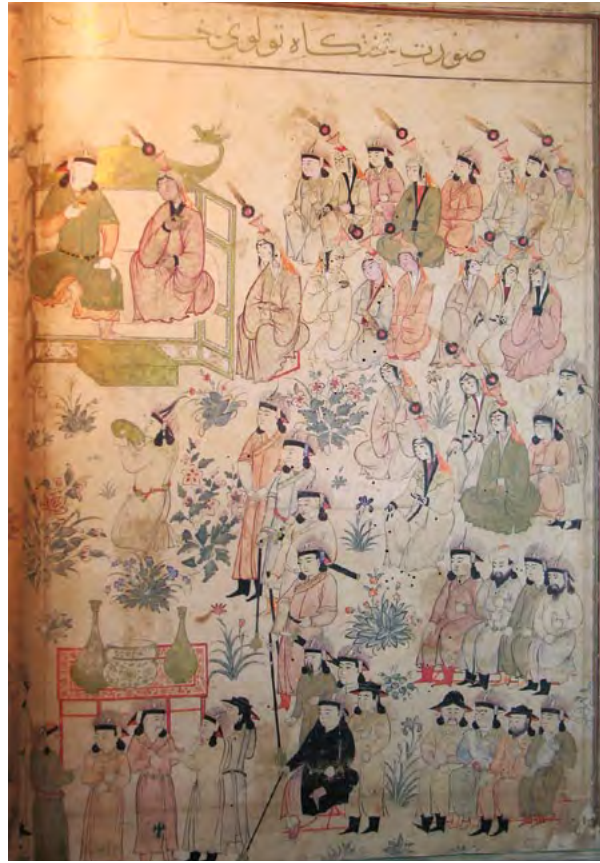 صورت تختکاه تولوی خان